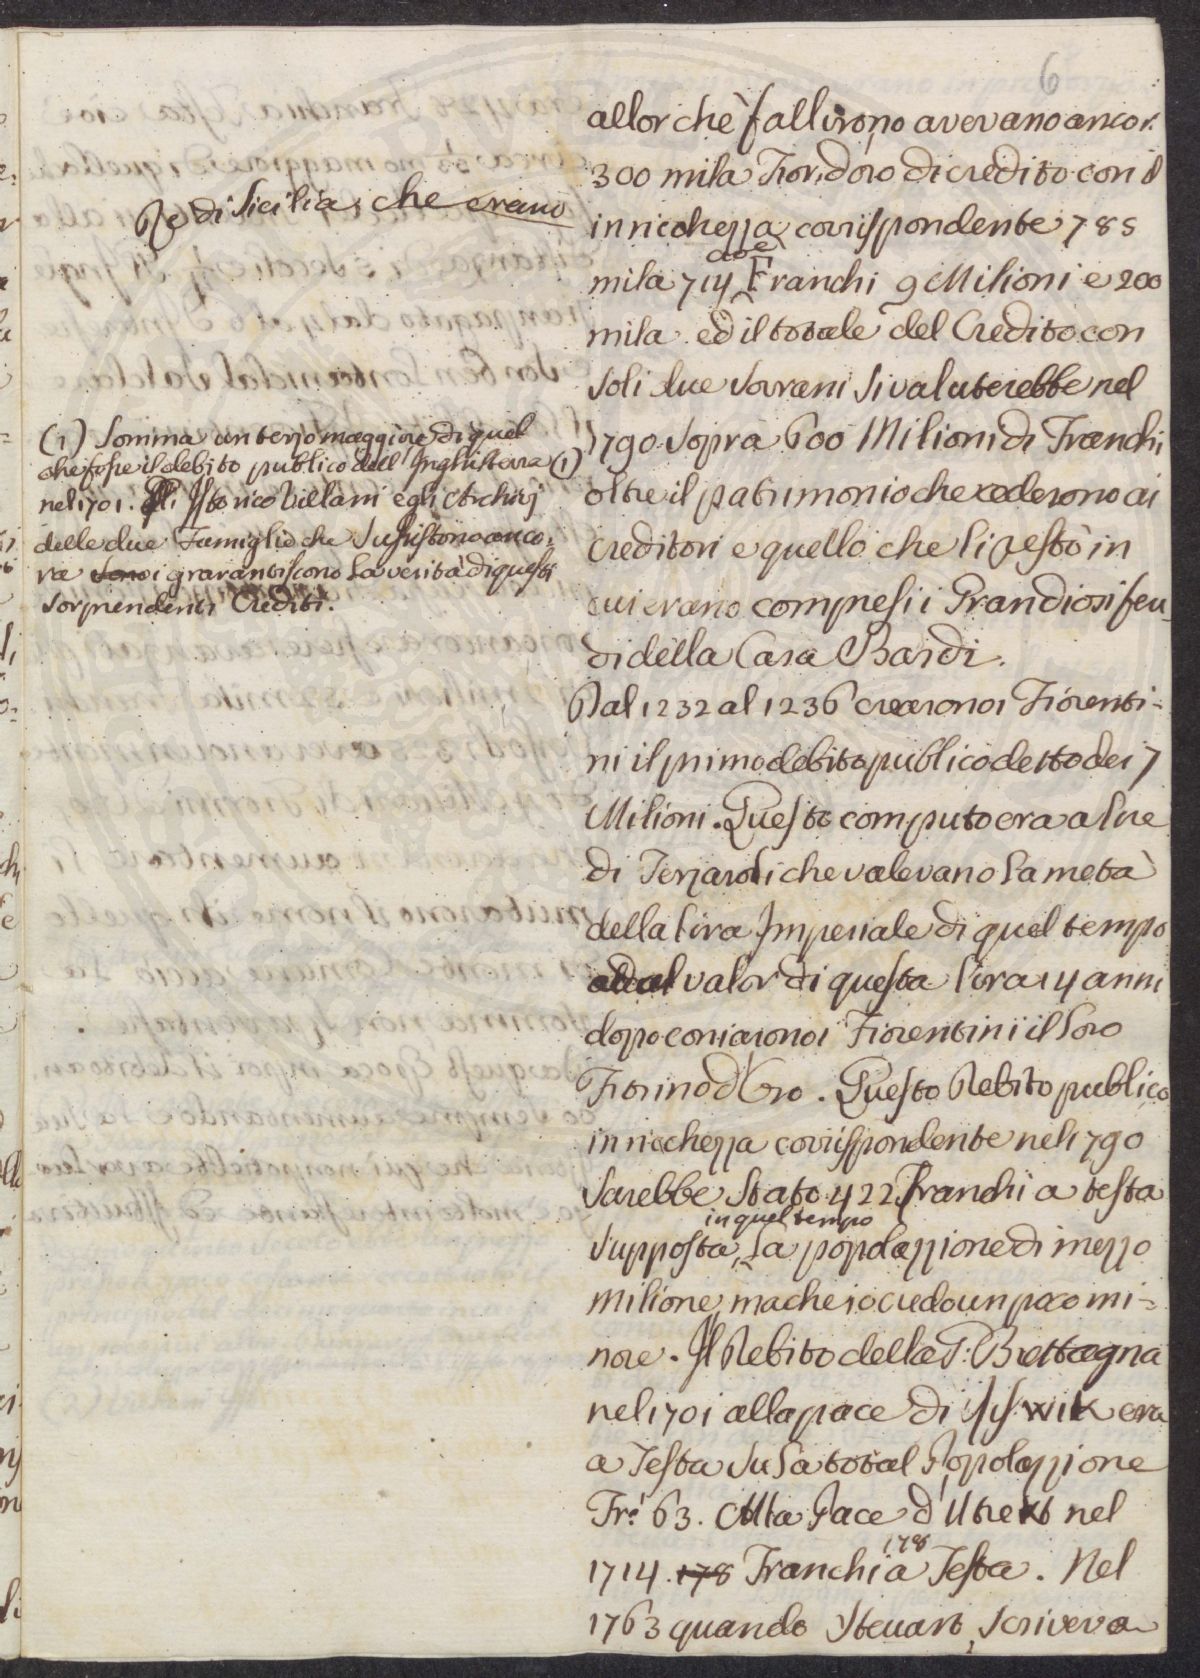 6
allor chè fallirono avevano ancor.
300 mila Fior. d'oro di credito con il
Re di Sicilia, che erano
in ricchezza corrispondente 785
cioè
mila 714 Franchi 9 Milioni e 200
mila ed il totale del Credito con
soli due Sovrani si valuterebbe nel
1790 sopra 600 Milioni di Franchi
oltre il patrimonio che cederono ai
Creditori e quello che li restò in
cui erano compresi i Grandiosi feu-
di della Casa Bardi.
(1) Somma un terzo maggiore di quel
che fosse il debito publico dell'Inghilterra (1)
nel 1701. Istorico Villani e gli Archivj
delle due Famiglie che Sussistono anco-
ra garantiscono la verità di questi
sorprendenti Crediti.
Dal 1232 al 1236 crearono i Fiorenti=
ni il primo debito publico detto dei 7
Milioni. Questo computo era a lire
di Terzaroli che valevano la metà
della lira Imperiale di quel tempo
al valor di questa lira 14 anni
dopo coniarono i Fiorentini il loro
Fiorino d'Oro. Questo Debito publico
in ricchezza corrispondente nel 1790
Sarebbe Stato 422 Franchi a testa
in quel tempo
Supposta, la popolazione di mezzo
milione, ma che io credo un poco mi=
nore. Il Debito della G: Brettagna
nel 1701 alla pace di wik era
a Testa su la total Popolazione
Fr.i 63. Alla Pace d'Utrekt nel
178
1714. 178 Franchi a Testa. Nel
1763 quando Steuart, scriveva